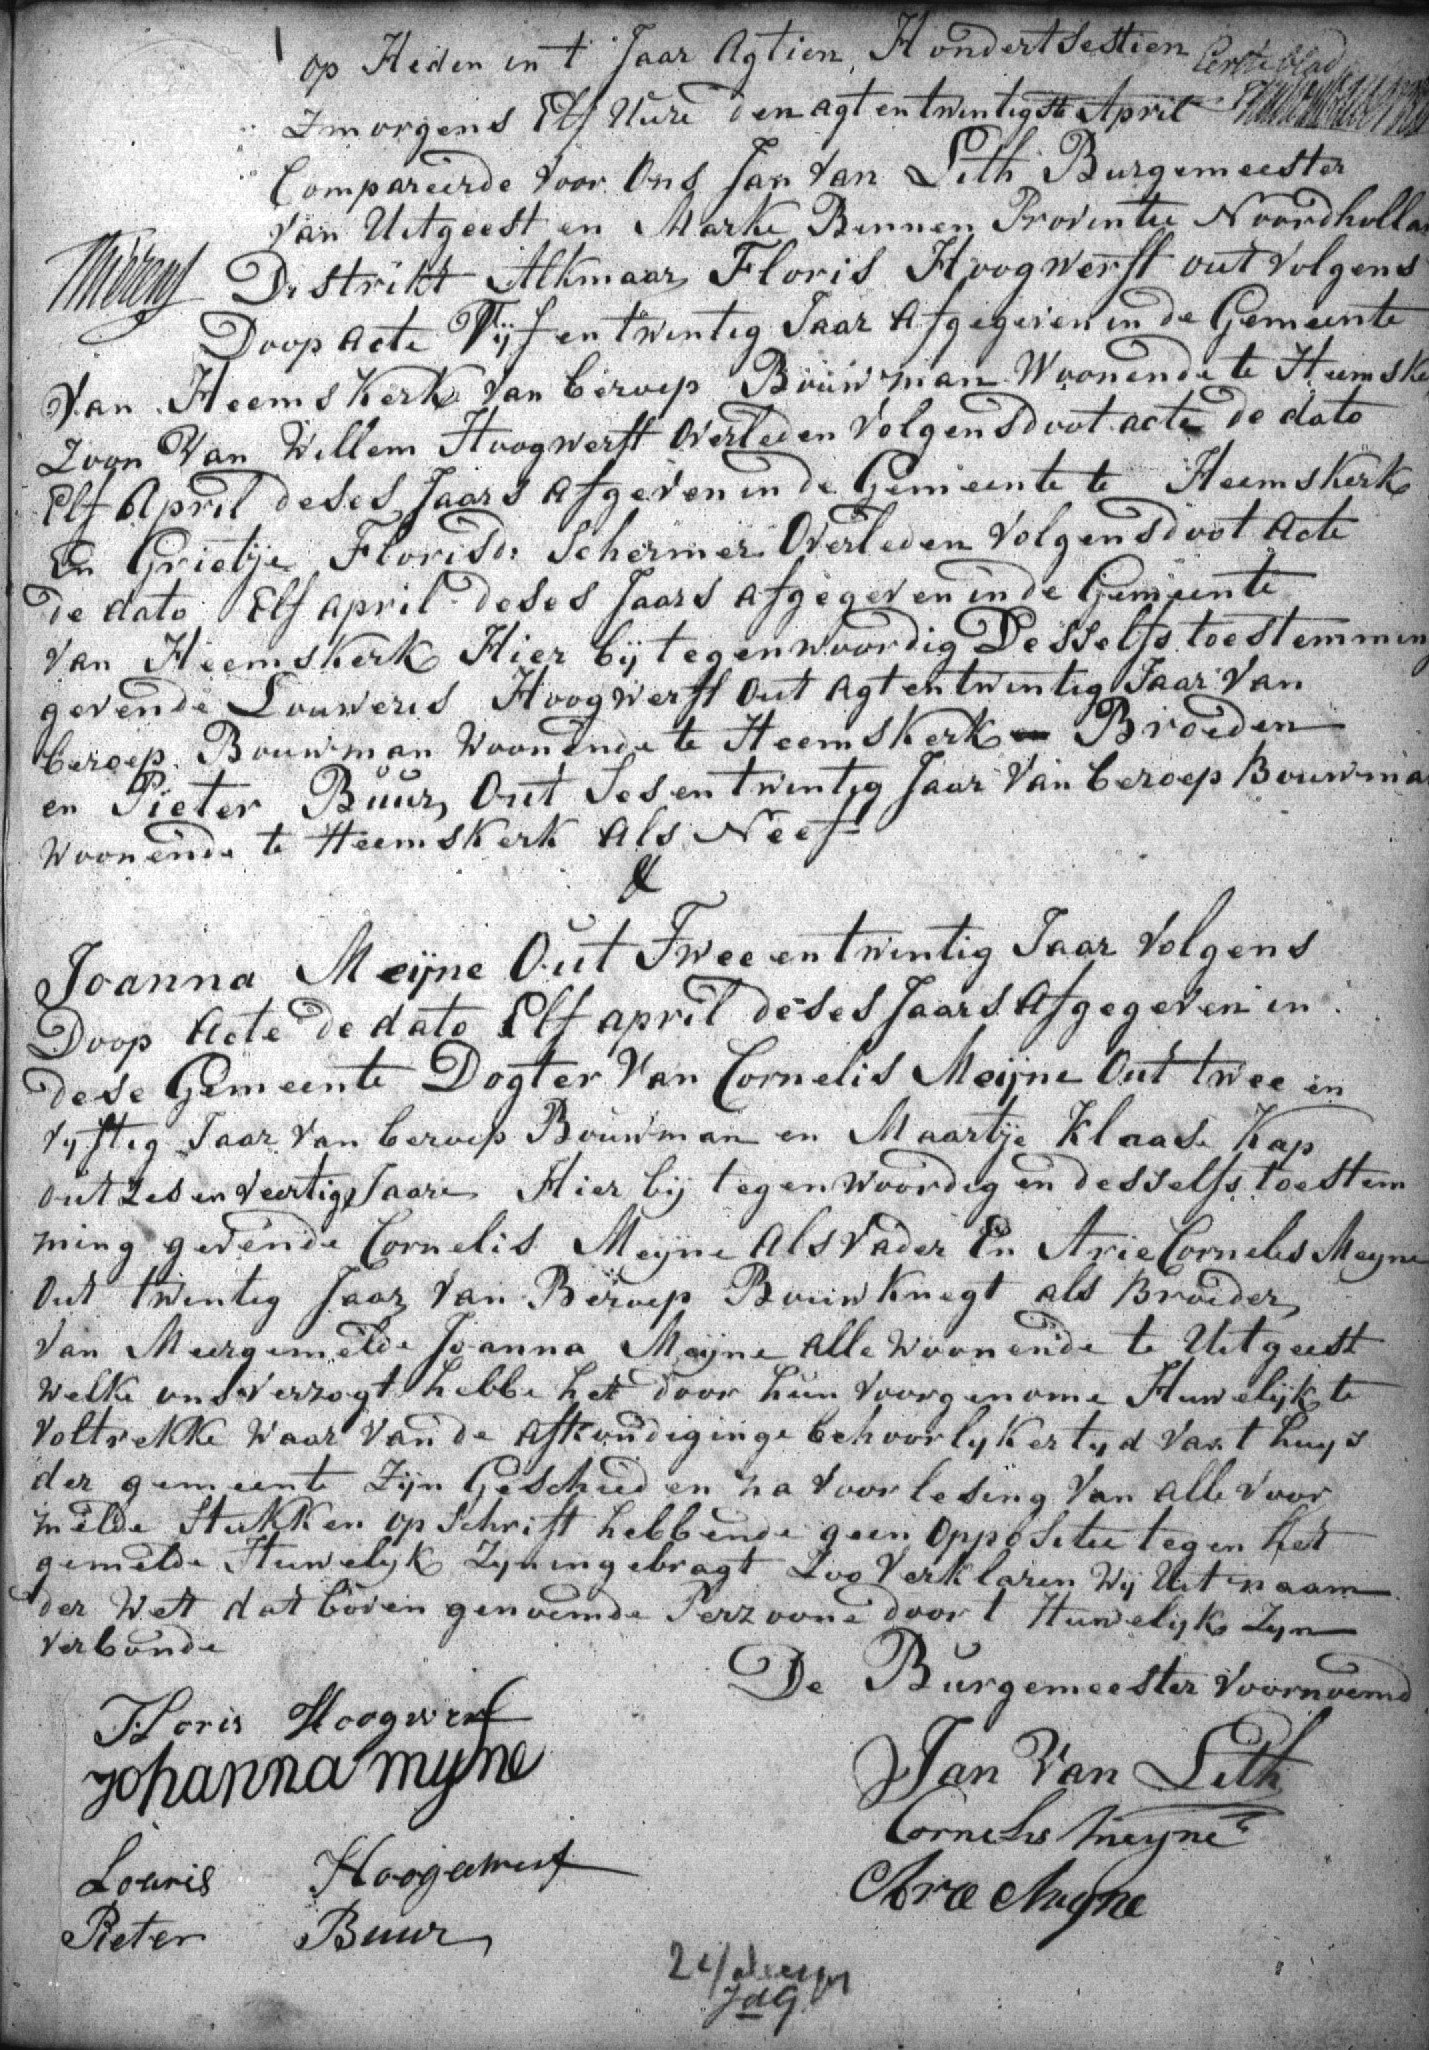 op Heden in t Jaar Agtien Hondert Sestien
Eerste blad
Zmorgens Elf Uure den agt en twintigste April
Compareerde voor Ons Jan Van Lith Burgemeester
van Uitgeest en Marke Binnen Provintie Noordhollan
Distrikt Alkmaar Floris Hoogwerff out volgens
Doop acte Vijf en twintig Jaar Afgegeven in de Gemeente
Van Heemskerk Van beroep Bouwman Woonende te Heemske
Zoon Van Willem Hoogwerff Overleden Volgens doot acte de dato
Elf April deses Jaars Afgeven in de Gemeente te Heemskerk
En Grietje Florisd: Schermer Overleden Volgens doot Acte
de dato Elf april deses Jaars Afgegeven in de Gemeente
van Heemskerk Hier bij tegenwoordig Desselfs toestemmin
gevende Louweris Hoogwerff Out Agt en twintig Jaar Van
beroep Bouwman Woonende te Heemskerk Broeden
en Pieter Buur Out Ses en twintig Jaar Van beroep Bouwma
woonende te Heemskerk Als Neef
&
Joanna Meijne Out Twee en twintig Jaar Volgens
Doop Acte de dato Elf april deses Jaars Afgegeven in
dese Gemeente Dogter Van Cornelis Meijne Out twee en
vyftig Jaar van beroep Bouwman en Maartje Klaase Kap
out Zes en Veertig Jaare Hier bij tegenwoordig en desselfs toestem
ming gevende Cornelis Meyne Als Vader En Arie Cornelis Meyne
Out twintig Jaar Van Beroep Bouwknegt als Broeder
Van Meergemelde Joanna Meyne Alle Woonende te Uitgeest
welke ons verzogt hebbe het door hun voorgenome Huwelijk te
voltrekke waar van de Afkondiginge behoorlyker tyd van t huys
der gemeente Zijn Geschied en na voorlesing Van alle voor
melde Stukken op Schrift hebbende geen Oppositie tegen het
gemelde Huwelyk Zyn ingebragt Zoo Verklaren Wij Uit naam
der Wet dat boven genoemde Perzoone door t Huwelijk Zyn
verbonde
De Burgemeester Voornoemd
Floris Hoogwerf
Johanna myne
Jan Van Lith
Cornelis Meyne
Louris Hoogewerf
Arie Meyne
Pieter Buur
JdG